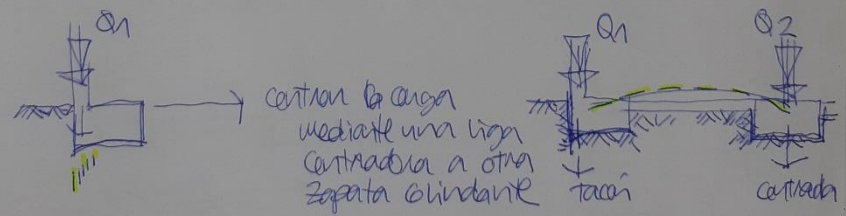 Q1
centrar la carga
mediante una viga
centradora a otra
zapata colindante
Q1
Q2
tacón
centrada